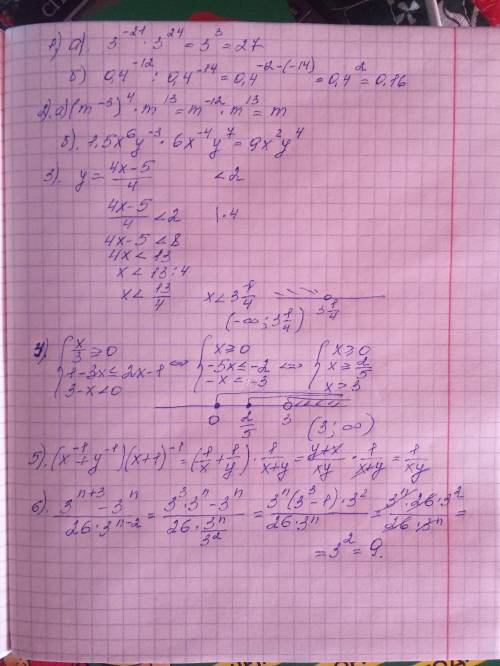 1) а). 3⁻²¹ · 3²⁴ = 3³ = 27
б) 0,4⁻¹² : 0,4⁻¹⁴ = 0,4⁻¹²⁻⁽⁻¹⁴⁾ = 0,4² = 0,16
2). а) (m⁻³)⁴ · m¹³ = m⁻¹² · m¹³ = m
б). 1,5x⁶y⁻³ · 6x⁻⁴y⁷ = 9x²y⁴
3). y = (4x-5)/4 < 2
(4x-5)/4 < 2 | · 4
4x-5 < 8
4x < 13
x < 13 : 4
x < 13/4 x < 3 1/4 3 1/4
(-∞; 3 1/4)
4) { x/3 ≥ 0 ⇔ { x ≥ 0 ⇔ { x ≥ 0
1-3x ≤ 2x-1 -5x ≤ -2 x ≥ 2/5
3-x < 0 -x < -3 x > 3
0 2/5 3 (3; ∞)
5). (x⁻¹+y⁻¹)(x+1)⁻¹ = (1/x + 1/y) · 1/(x+y) = (y+x)/xy · 1/(x+y) = 1/xy
6). (3ⁿ⁺³ - 3ⁿ)/(26 · 3ⁿ⁻²) = (3³ · 3ⁿ - 3ⁿ)/(26 · 3ⁿ/3²) = (3ⁿ(3³-1) · 3²)/(26 · 3ⁿ) = (3ⁿ · 26 · 3²)/(26 · 3ⁿ) =
= 3² = 9.